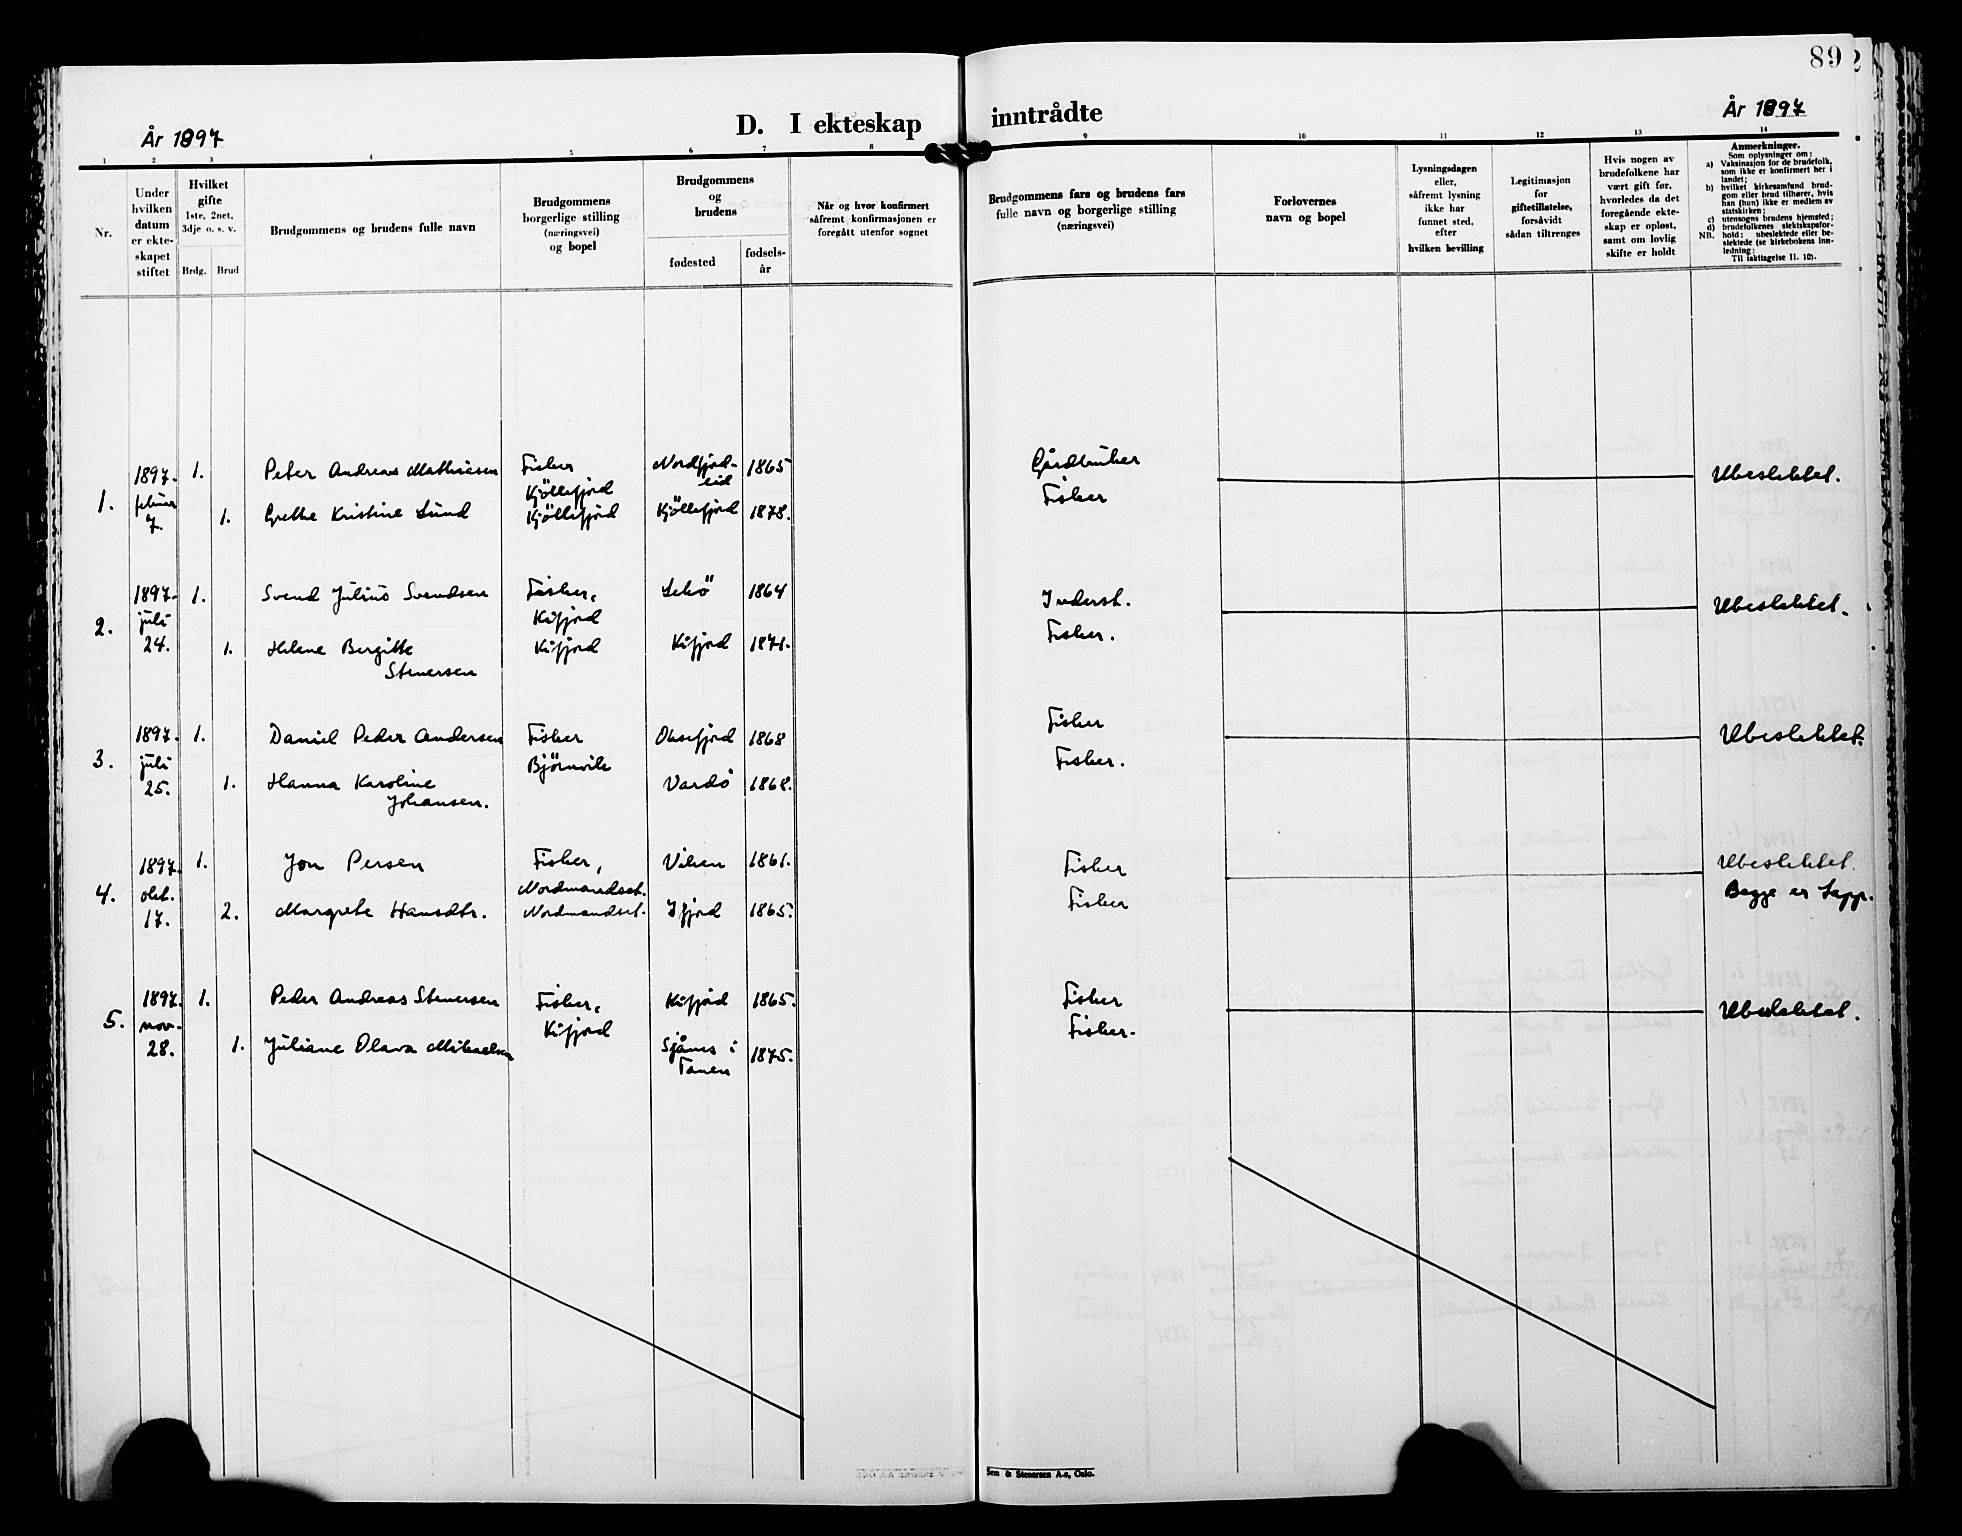 89
År 1897
D. I ekteskap inntrådte
År 1897
1 2 3 4 5 6 7 8 9 10 11 12 13 14
Nr.
Under
hvilken
datum
er ekte-
skapet
stiftet
Hvilket
gifte
1ste, 2net,
3dje o. s. v.
Brdg. Brud
Brudgommens og brudens fulle navn
Brudgommens
borgerlige stilling
(næringsvei)
og bopel
Brudgommens
og
brudens
fødested
fødsels-
år
Når og hvor konfirmert
såfremt konfirmasjonen er
foregått utenfor sognet
Brudgommens fars og brudens fars
fulle navn og borgerlige stilling
(næringsvei)
Forlovernes
navn og bopel
Lysningsdagen
eller,
såfremt lysning
ikke har
funnet sted,
efter
hvilken bevilling
Legitimasjon
for
giftetillatelse,
forsåvidt
sådan tiltrenges
Hvis nogen av
brudefolkene har
vært gift før,
hvorledes da det
foregående ekte-
skap er opløst,
samt om lovlig
skifte er holdt
Anmerkninger.
Som oplysninger om:
a) Vaksinasjon for de brudefolk,
som ikke er konfirmert her i
landet;
b) hvilket kirkesamfund brud-
gom eller brud tilhører, hvis
han (hun) ikke er medlem av
statskirken;
c) utensogns brudens hjemsted;
d) brudefolkenes slektskapsfor-
NB. hold: ubeslektede eller be-
slektede (se kirkebokens inn-
ledning:
Til iakttagelse II. 10).
1.
1897.
februar
7.
1. Peter Andreas Mathisen Fisker
Kjöllefjord
Nordfjord-
eid
1865 Gårdbruker Ubeslektet.
1. Grethe Kristine Lund Kjöllefjord Kjöllefjord 1878. Fisker
2.
1897.
juli
24.
1. Svend Julius Svendsen Fisker,
Kifjord
Lekö 1864 Inderst. Ubeslektet.
1. Helene Bergitte
Stenersen
Kifjord Kifjord 1871. Fisker.
3.
1897.
juli
25.
1. Daniel Peder Andersen Fisker
Bjørnvik
Oksefjord 1868 Fisker Ubeslektet.
1. Hanna Karoline
Johansen.
Vardö 1868. Fisker.
4.
1897.
okt.
17.
1. Jon Persen Fisker,
Nordmandset.
Viken 1861. Fisker Ubeslektet.
2. Margrete Hansdtr. Nordmandset. Ifjord 1865. Fisker Begge er Lapp.
5.
1897.
nov.
28.
1. Peder Andreas Stenersen Fisker,
Kifjord
Kifjord 1865. Fisker Ubeslektet.
1. Juliane Olava Mikaelsen Sjånes i
Tanen
1875. Fisker.
Sem & Stenersen A.s, Oslo.